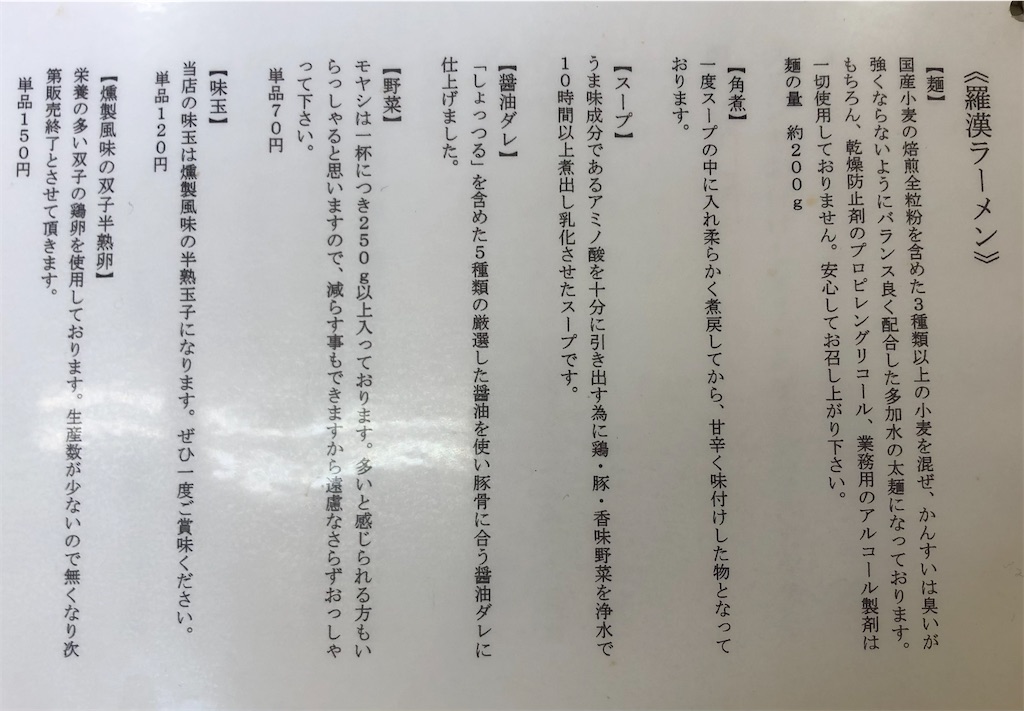 《羅漢ラーメン》
【麺】
国産小麦の焙煎全粒粉を含めた３種類以上の小麦を混ぜ、かんすいは臭いが
強くならないようにバランス良く配合した多加水の太麺になっております。
もちろん、乾燥防止剤のプロピレングリコール、業務用のアルコール製剤は
一切使用しておりません。安心してお召し上がり下さい。
麺の量　約２００ｇ
【角煮】
一度スープの中に入れ柔らかく煮戻してから、甘辛く味付けした物となって
おります。
【スープ】
うま味成分であるアミノ酸を十分に引き出す為に鶏・豚・香味野菜を浄水で
１０時間以上煮出し乳化させたスープです。
【醤油ダレ】
「しょっつる」を含めた５種類の厳選した醤油を使い豚骨に合う醤油ダレに
仕上げました。
【野菜】
モヤシは一杯につき２５０ｇ以上入っております。多いと感じられる方もい
らっしゃると思いますので、減らす事もできますから遠慮なさらずおっしゃ
って下さい。
単品７０円
【味玉】
当店の味玉は燻製風味の半熟玉子になります。ぜひ一度ご賞味ください。
単品１２０円
【燻製風味の双子半熟卵】
栄養の多い双子の鶏卵を使用しております。生産数が少ないので無くなり次
第販売終了とさせて頂きます。
単品１５０円